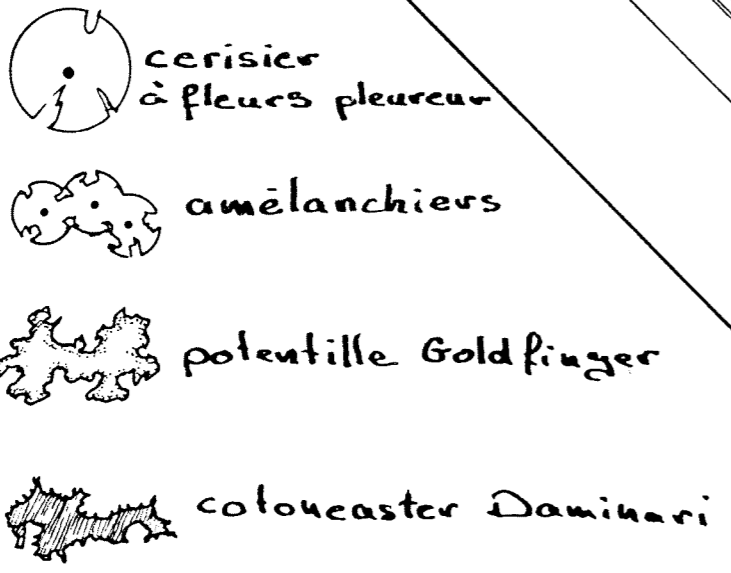 cerisier
à fleurs pleureur
amélanchiers
potentille Goldfinger
cotoneaster Daminari